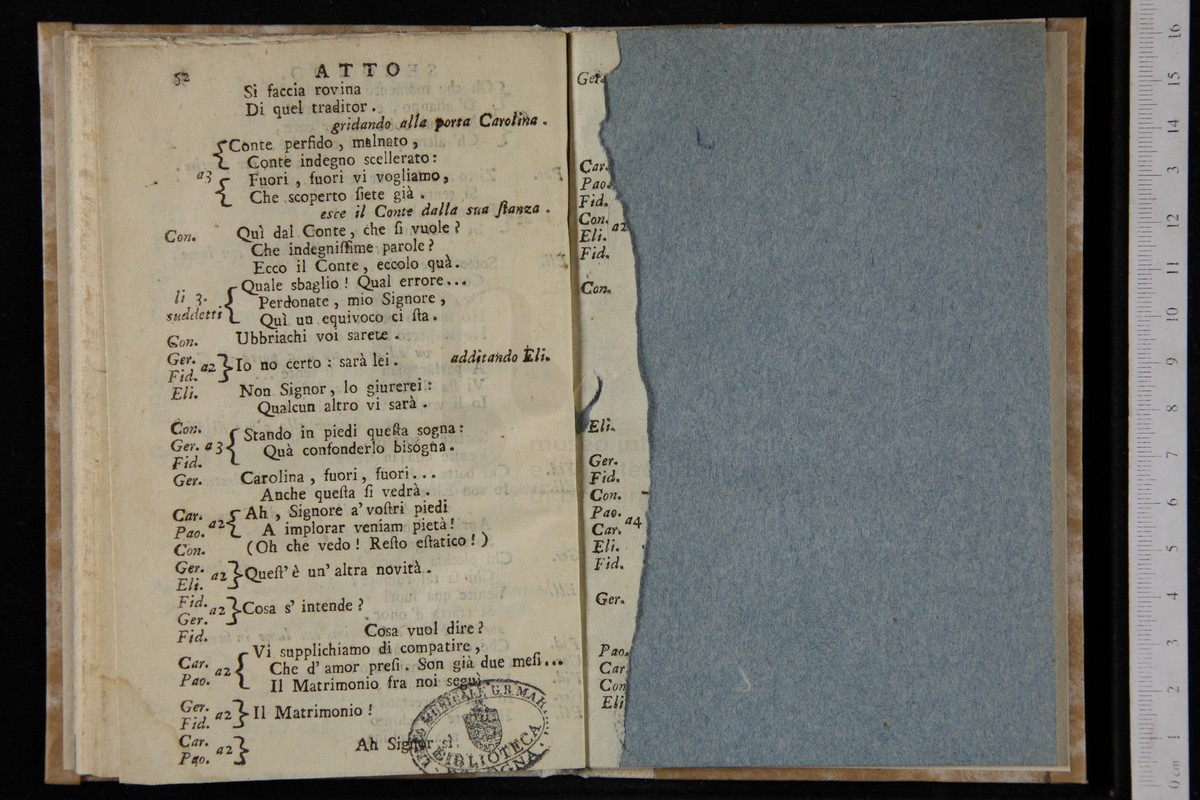 52 ATTO
Sì faccia rovina
Di quel traditor.
gridando alla porta Carolina.
Conte perfido, malnato,
Conte indegno scellerato:
a3 Fuori, fuori vi vogliamo,
Che scoperto ſiete già.
esce il Conte dalla sua ſtanza.
Con. Quì dal Conte, che ſi vuole?
Che indegniſſime parole?
Ecco il Conte, eccolo quà.
Quale sbaglio! Qual errore...
li 3. suddetti Perdonate, mio Signore,
Quì un equivoco ci ſta.
Con. Ubbriachi voi sarete.
Ger. Fid. a2 Io no certo: sarà lei. additando Eli.
Eli. Non Signor, lo giurerei:
Qualcun altro vi sarà.
Con. Ger. Fid. a3 Stando in piedi queſta sogna:
Quà confonderlo bisógna.
Ger. Carolina, fuori, fuori...
Anche queſta ſi vedrà.
Car. Pao. a2 Ah, Signore a' voſtri piedi
A implorar veniam pietà!
Con. (Oh che vedo! Reſto eſtatico!)
Ger. Eli. a2 Queſt' è un' altra novità.
Fid. Ger. a2 Cosa s' intende?
Fid. Cosa vuol dire?
Vi supplichiamo di compatire,
Car. Pao. a2 Che d' amor preſi. Son già due meſi...
Il Matrimonio fra noi seguì
Ger. Fid. a2 Il Matrimonio!
Car. Pao. a2 Ah Signor sì.
MUSICALE G. B. MAR.
BIBLIOTECA
Ger.
Car.
Pao.
Fid.
Con.
Eli. a2
Fid.
Con.
Eli.
Ger.
Fid.
Con.
Pao.
Car. a4
Eli.
Fid.
Ger.
Pao.
Car.
Con
Eli
0 cm 1 2 3 4 5 6 7 8 9 10 11 12 13 14 15 16